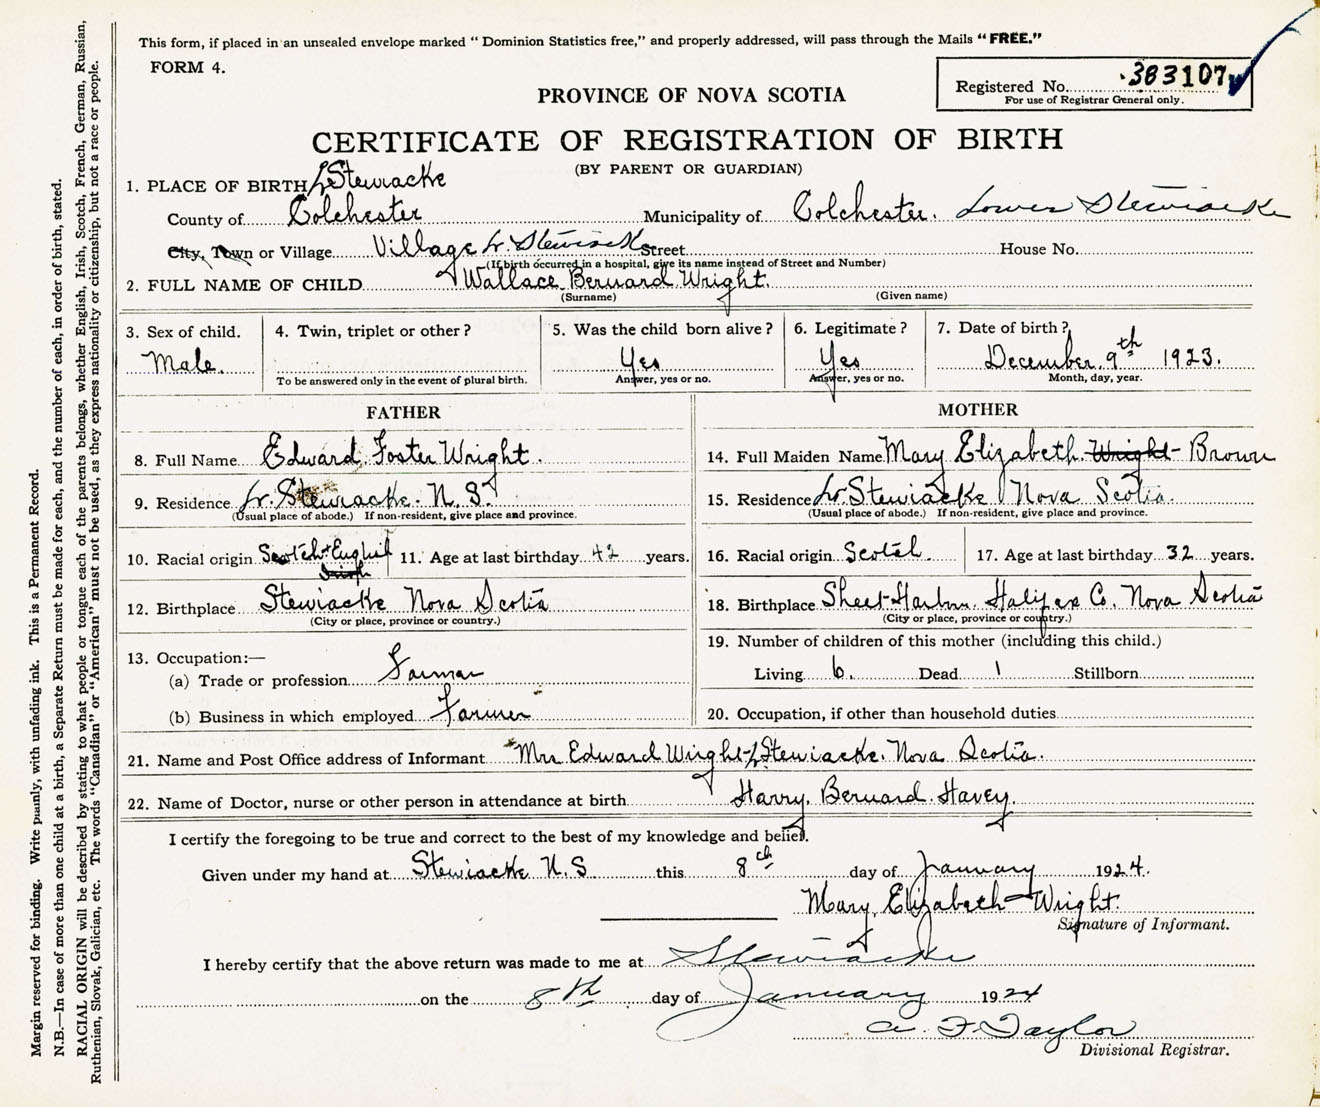 This form, if placed in an unsealed envelope marked "Dominion Statistics free," and properly addressed, will pass through the Mails "FREE."
FORM 4.
Registered No. 383107
For use of Registrar General only.
PROVINCE OF NOVA SCOTIA
CERTIFICATE OF REGISTRATION OF BIRTH
(BY PARENT OR GUARDIAN)
1. PLACE OF BIRTH L Stewiacke
County of Colchester Municipality of Colchester. Lower Stewiacke
City, Town or Village Village Lr. Stewiacke Street House No.
(If birth occurred in a hospital, give its name instead of Street and Number)
2. FULL NAME OF CHILD Wallace Bernard Wright.
(Surname) (Given name)
3. Sex of child. 4. Twin, triplet or other? 5. Was the child born alive? 6. Legitimate? 7. Date of birth?
Male. Yes Yes December 9th 1923.
To be answered only in the event of plural birth. Answer, yes or no. Answer, yes or no. Month, day, year.
FATHER MOTHER
8. Full Name Edward Foster Wright. 14. Full Maiden Name Mary Elizabeth Wright- Brown
9. Residence Lr. Stewiacke. N. S. 15. Residence Lr Stewiacke Nova Scotia.
(Usual place of abode.) If non-resident, give place and province. (Usual place of abode.) If non-resident, give place and province.
10. Racial origin Scotch-English Irish 11. Age at last birthday 42 years. 16. Racial origin Scotch. 17. Age at last birthday 32 years.
12. Birthplace Stewiacke Nova Scotia 18. Birthplace Sheet-Harbor. Halifax Co. Nova Scotia
(City or place, province or country.) (City or place, province or country.)
13. Occupation:— 19. Number of children of this mother (including this child.)
(a) Trade or profession Farmer Living 6. Dead 1 Stillborn
(b) Business in which employed Farmer 20. Occupation, if other than household duties
21. Name and Post Office address of Informant Mrs Edward Wright L Stewiacke. Nova Scotia.
22. Name of Doctor, nurse or other person in attendance at birth Harry. Bernard. Havey.
I certify the foregoing to be true and correct to the best of my knowledge and belief.
Given under my hand at Stewiacke N.S. this 8th day of January 1924.
Mary Elizabeth Wright.
Signature of Informant.
I hereby certify that the above return was made to me at Stewiacke
on the 8th day of January 1924
A. F. Taylor
Divisional Registrar.
Margin reserved for binding. Write plainly, with unfading ink. This is a Permanent Record.
N.B.—In case of more than one child at a birth, a Separate Return must be made for each, and the number of each, in order of birth, stated.
RACIAL ORIGIN will be described by stating to what people or tongue each of the parents belongs, whether English, Irish, Scotch, French, German, Russian,
Ruthenian, Slovak, Galician, etc. The words "Canadian" or "American" must not be used, as they express nationality or citizenship, but not a race or people.